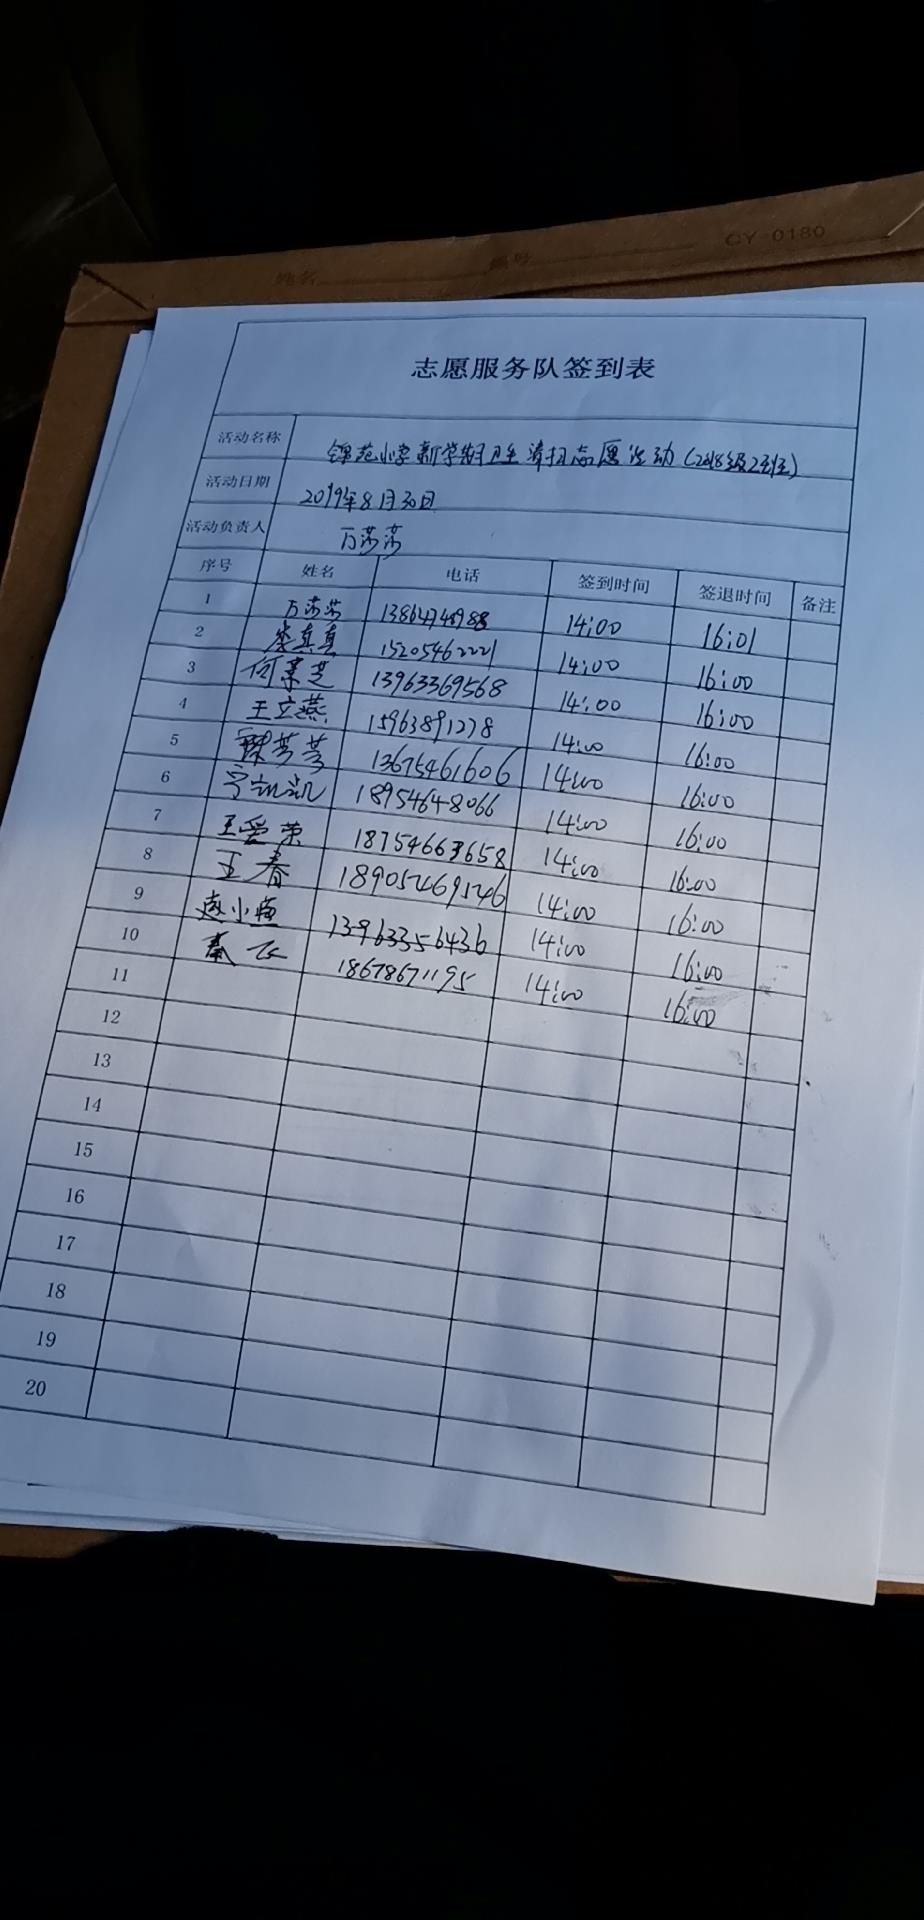 姓名 编号 CY-0180
志愿服务队签到表
活动名称 锦苑小学新学期卫生清扫志愿活动(2018级2班)
活动日期 2019年8月30日
活动负责人 万莎莎
序号 姓名 电话 签到时间 签退时间 备注
1 万莎莎 14:00 16:01
2 真真 15205462221 14:00 16:00
3 何 13963369568 14:00 16:00
4 王立燕 15963891278 14:00 16:00
5 13675461606 14:00 16:00
6 宁凯凯 18954648066 14:00 16:00
7 王爱荣 18754663658 14:00 16:00
8 王春 18905469546 14:00 16:00
9 赵小燕 13963356436 14:00 16:00
10 秦飞 18678671195 14:00 16:00
11
12
13
14
15
16
17
18
19
20